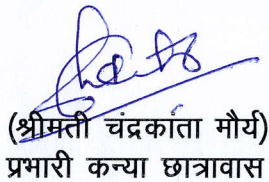 (श्रीमती चंद्रकांता मौर्य)
प्रभारी कन्या छात्रावास